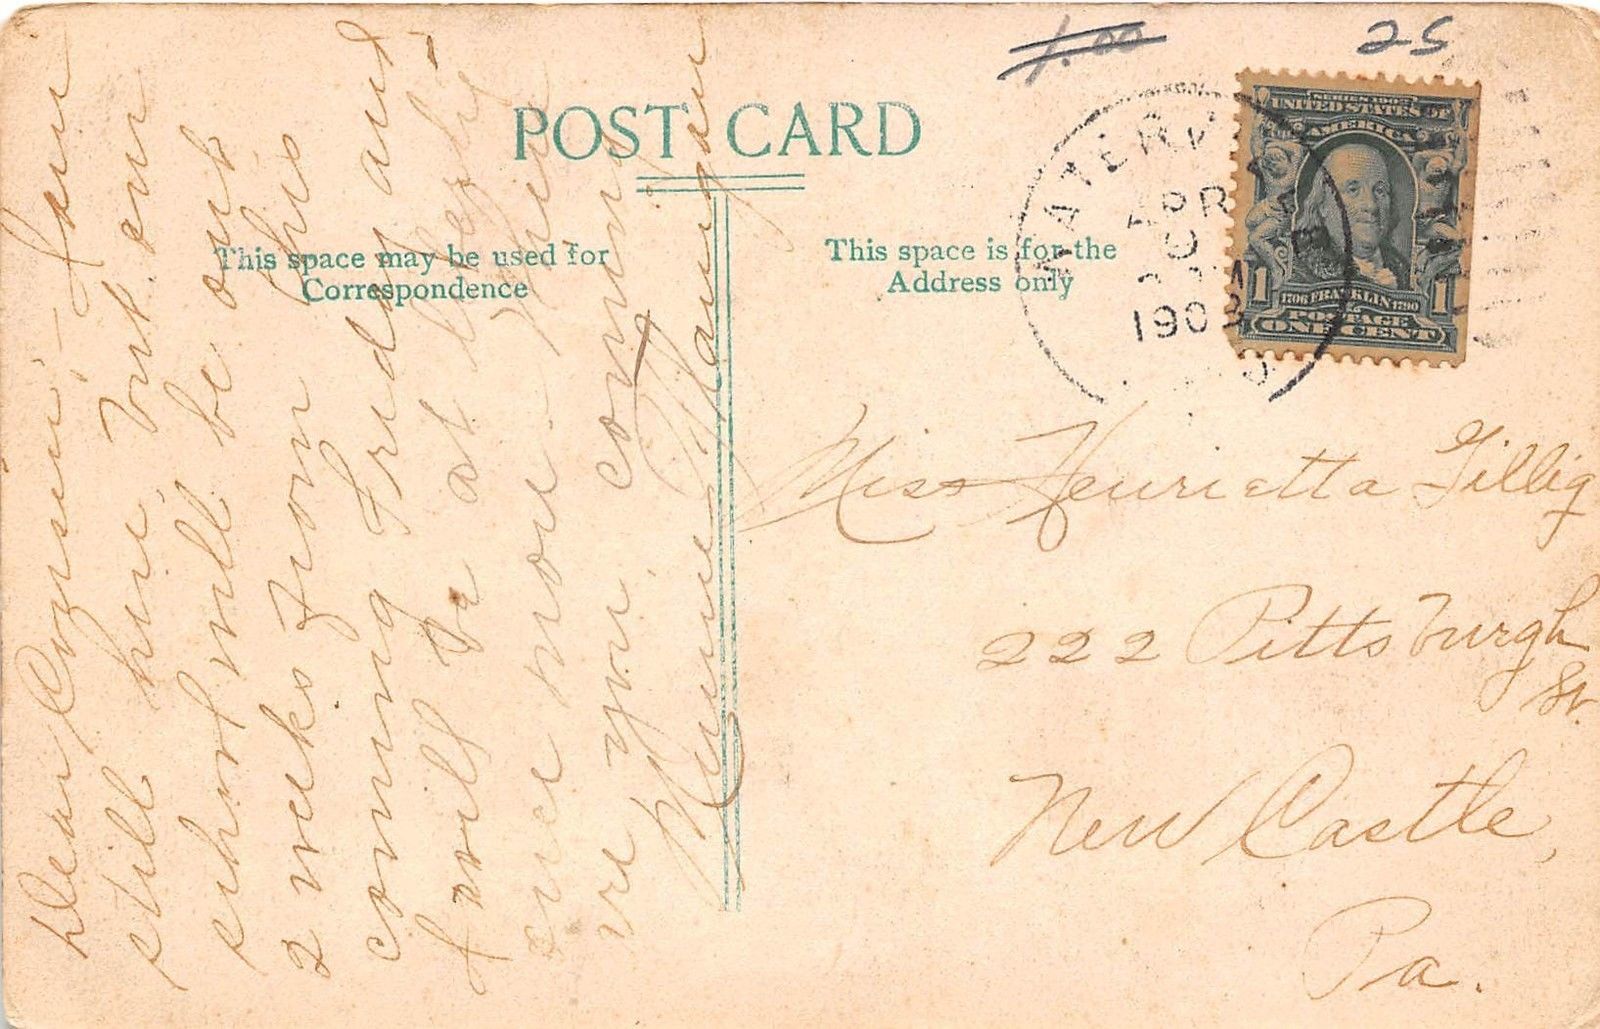 1.00
25
POST CARD
This space may be used for
Correspondence
This space is for the
Address only
APR
1908
SERIES 1902
UNITED STATES OF
AMERICA
1 1706 FRANKLIN 1790 1
POSTAGE
ONE CENT
Dear Cozsin, - I am
still here, but our
school will be out
2 weeks from this
coming Friday and
I will be at
once more. Where
are you coming
Maugan
Miss Henrietta Gillig
222 Pittsburgh
St.
New Castle,
Pa.